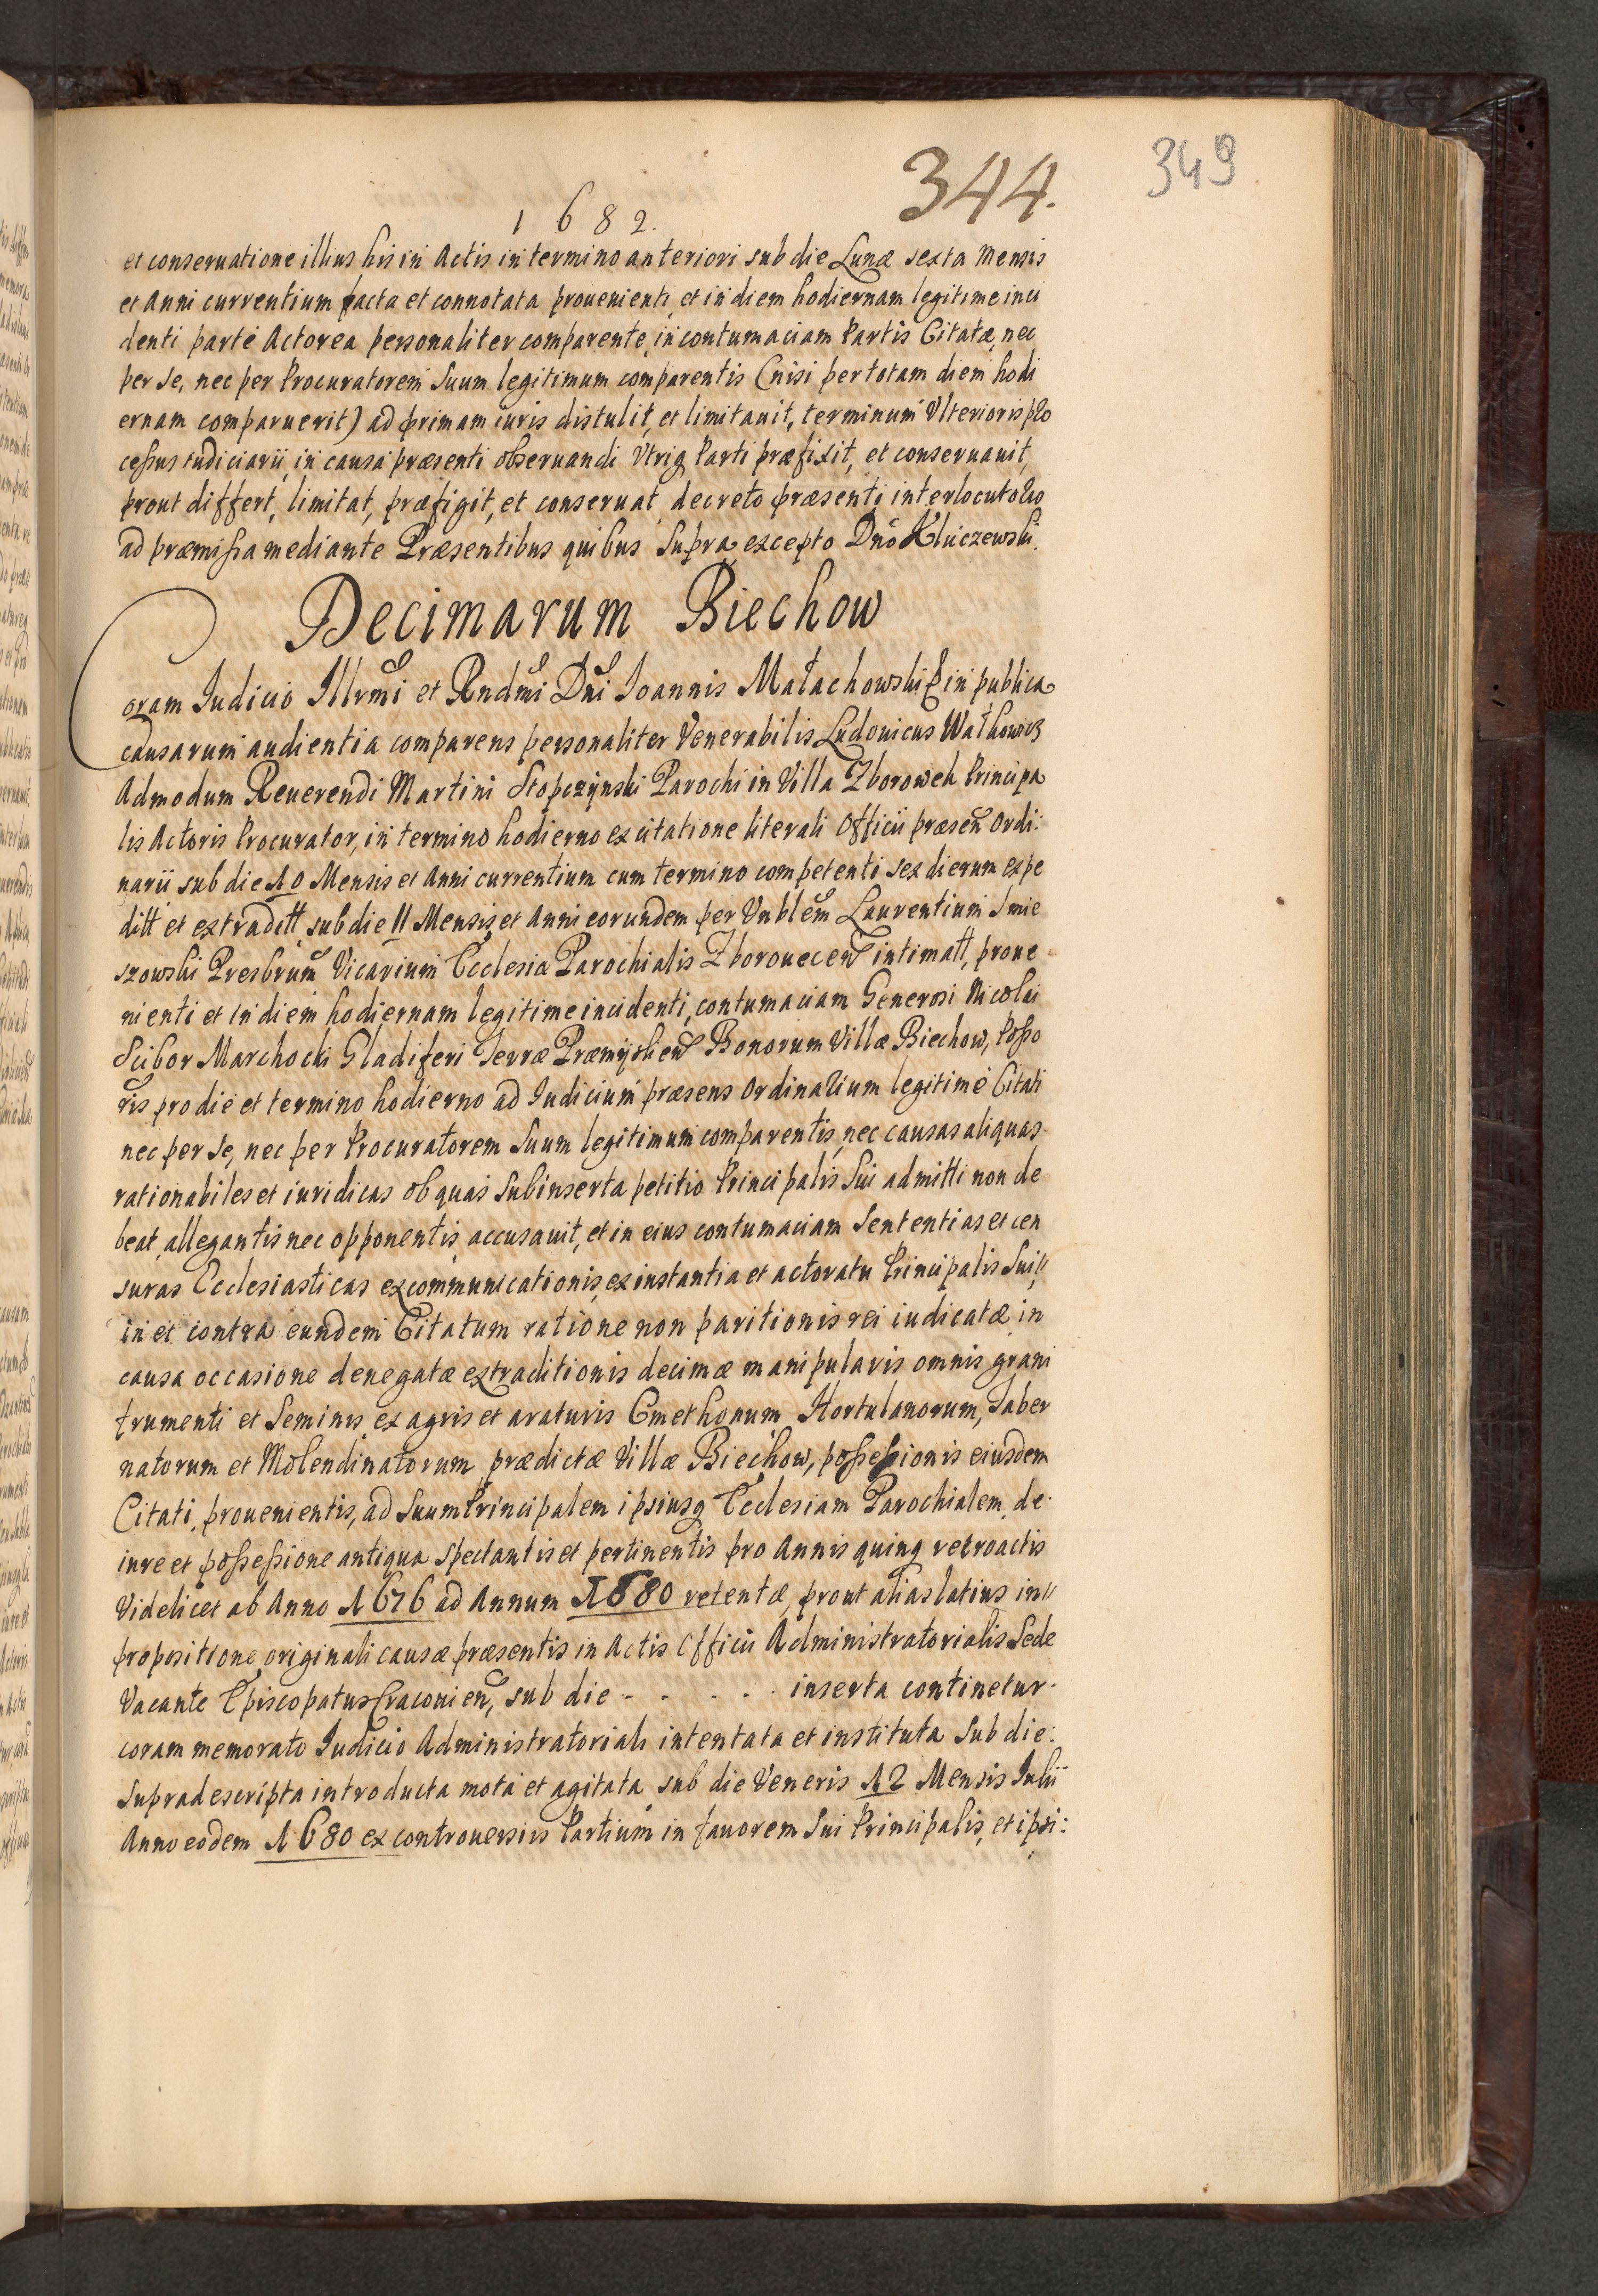 344.
349
1682.
et conseruatione illius his in Actis in termino anteriori sub die Lunæ sexta Mensis
et Anni currentium facta et connotata prouenienti, et in diem hodiernam legitime inci
denti parte Actorea personaliter comparente, in contumaciam Partis Citatæ, nec
per se, nec per Procuratorem Suum legitimum comparentis (nisi per totam diem hodi
ernam comparuerit) ad primam iuris distulit, et limitauit, terminum Vlterioris pro
cessus iudiciarii in causa præsenti obseruandi Vtriq Parti præfixit, et conseruauit,
prout differt, limitat, præfigit, et conseruat decreto præsenti interlocutorio
ad præmissa mediante Præsentibus quibus Supra excepto Dno Kluczewski.
Decimarum Biechow
Coram Iudicio Illrmi et Rndmi Dni Ioannis Małachowski in publica
causarum audientia comparens personaliter Venerabilis Ludouicus Wałkowski
Admodum Reuerendi Martini Stopczynski Parochi in Villa Zborowek Principa
lis Actoris Procurator, in termino hodierno ex citatione literali Officii præsen Ordi:
narii sub die 10 Mensis et Anni currentium cum termino competenti sex dierum expe
ditt et extraditt, sub die 11 Mensis et Anni eorundem per Vnblem Laurentium Smie
szowski Presbrum Vicarium Ecclesiæ Parochialis Zborouecen intimatt, proue
nienti et in diem hodiernam legitime incidenti, contumaciam Generosi Nicolai
Scibor Marchocki Gladiferi Terræ Præmyslien Bonorum Villæ Biechow, Posso
ris pro die et termino hodierno ad Iudicium præsens Ordinarium legitime Citati
nec per se, nec per Procuratorem Suum legitimum comparentis, nec causas aliquas
rationabiles et iuridicas ob quas Subinserta petitio Principalis Sui admitti non de
beat, allegantis nec opponentis accusauit, et in eius contumaciam Sententias et cen
suras Ecclesiasticas excommunicationis, ex instantia et actoratu Principalis Sui//
in et contra eundem Citatum ratione non paritionis rei iudicatæ in
causa occasione denegatæ extraditionis decimæ manipularis omnis grani
frumenti et Seminis ex agris et araturis Cmethonum Hortulanorum, Taber
natorum et Molendinatorum prædictæ Villæ Biechow, possessionis eiusdem
Citati, prouenientis, ad Suum Principalem ipsiusq Ecclesiam Parochialem, de
iure et possessione antiqua spectantis et pertinentis pro Annis quinq retroactis
Videlicet ab Anno 1676 ad Annum 1680 retentæ, prout alias latius in//
propositione originali causæ præsentis in Actis Officii Administratorialis Sede
Vacante Episcopatus Cracouien, sub die - . . - . inserta continetur.
coram memorato Iudicio Administratoriali intentata et instituta Sub die:
Supradescripta introducta mota et agitata sub die Veneris 12 Mensis Iulii
Anno eodem 1680 ex controuersiis Partium in fauorem Sui Principalis, et ipsi: